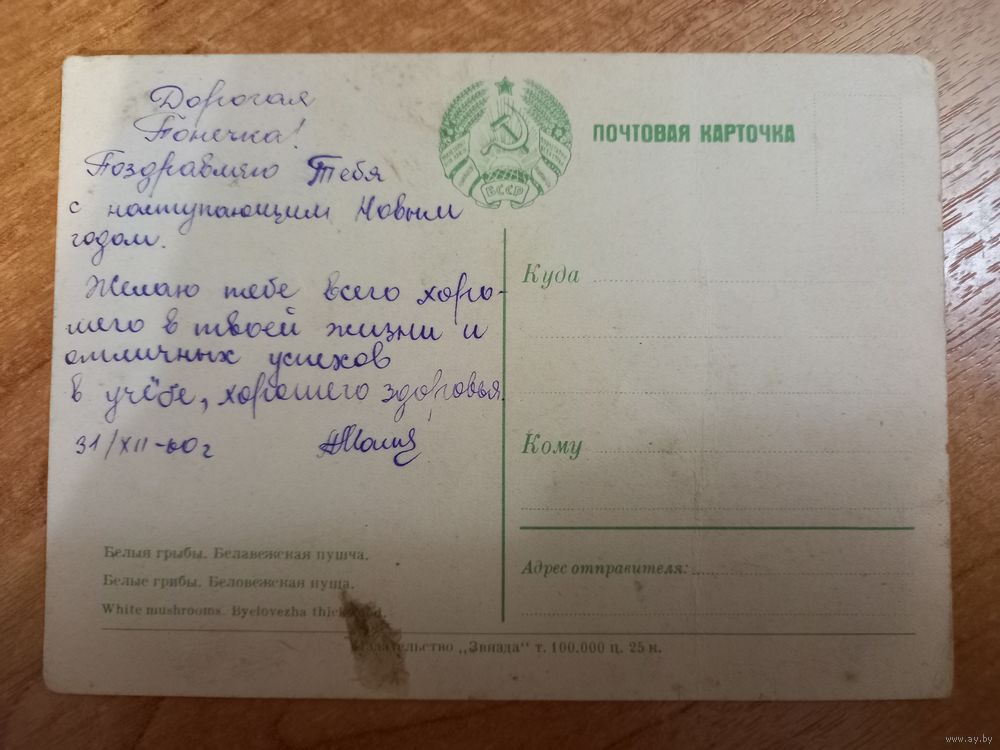 Дорогая
Тонечка!
Поздравляю Тебя
с наступающим Новым
годом.
Желаю тебе всего хоро-
шего в твоей жизни и
отличных успехов
в учёбе, хорошего здоровья.
31/XII-60г
БССР
ПОЧТОВАЯ КАРТОЧКА
Куда
Кому
Адрес отправителя:
Белыя грыбы. Белавежская пушча.
Белые грибы. Беловежская пуща.
White mushrooms. Byelovezha
Издательство „Звязда" т. 100.000 ц. 25 к.
www.ay.by